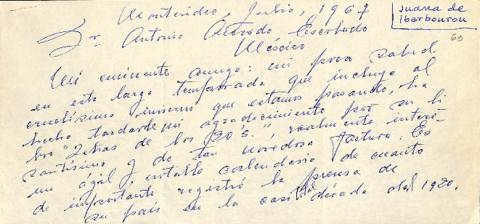 Montevideo, Julio, 1967
Juana de
Ibarbourou
60
Sr. Antonio Acevedo Escobedo
México
Mi eminente amigo: mi poca salud
en esta larga temporada que incluye al
cruelísimo invierno que estamos pasando, ha
hecho tardar mi agradecimiento por su li
bro "Letras de los 20's", realmente intere-
santísimo y de tan novedosa factura. Es
un ágil y notable calendario de cuanto
de importante registró la prensa de
su país en la década del 1920.